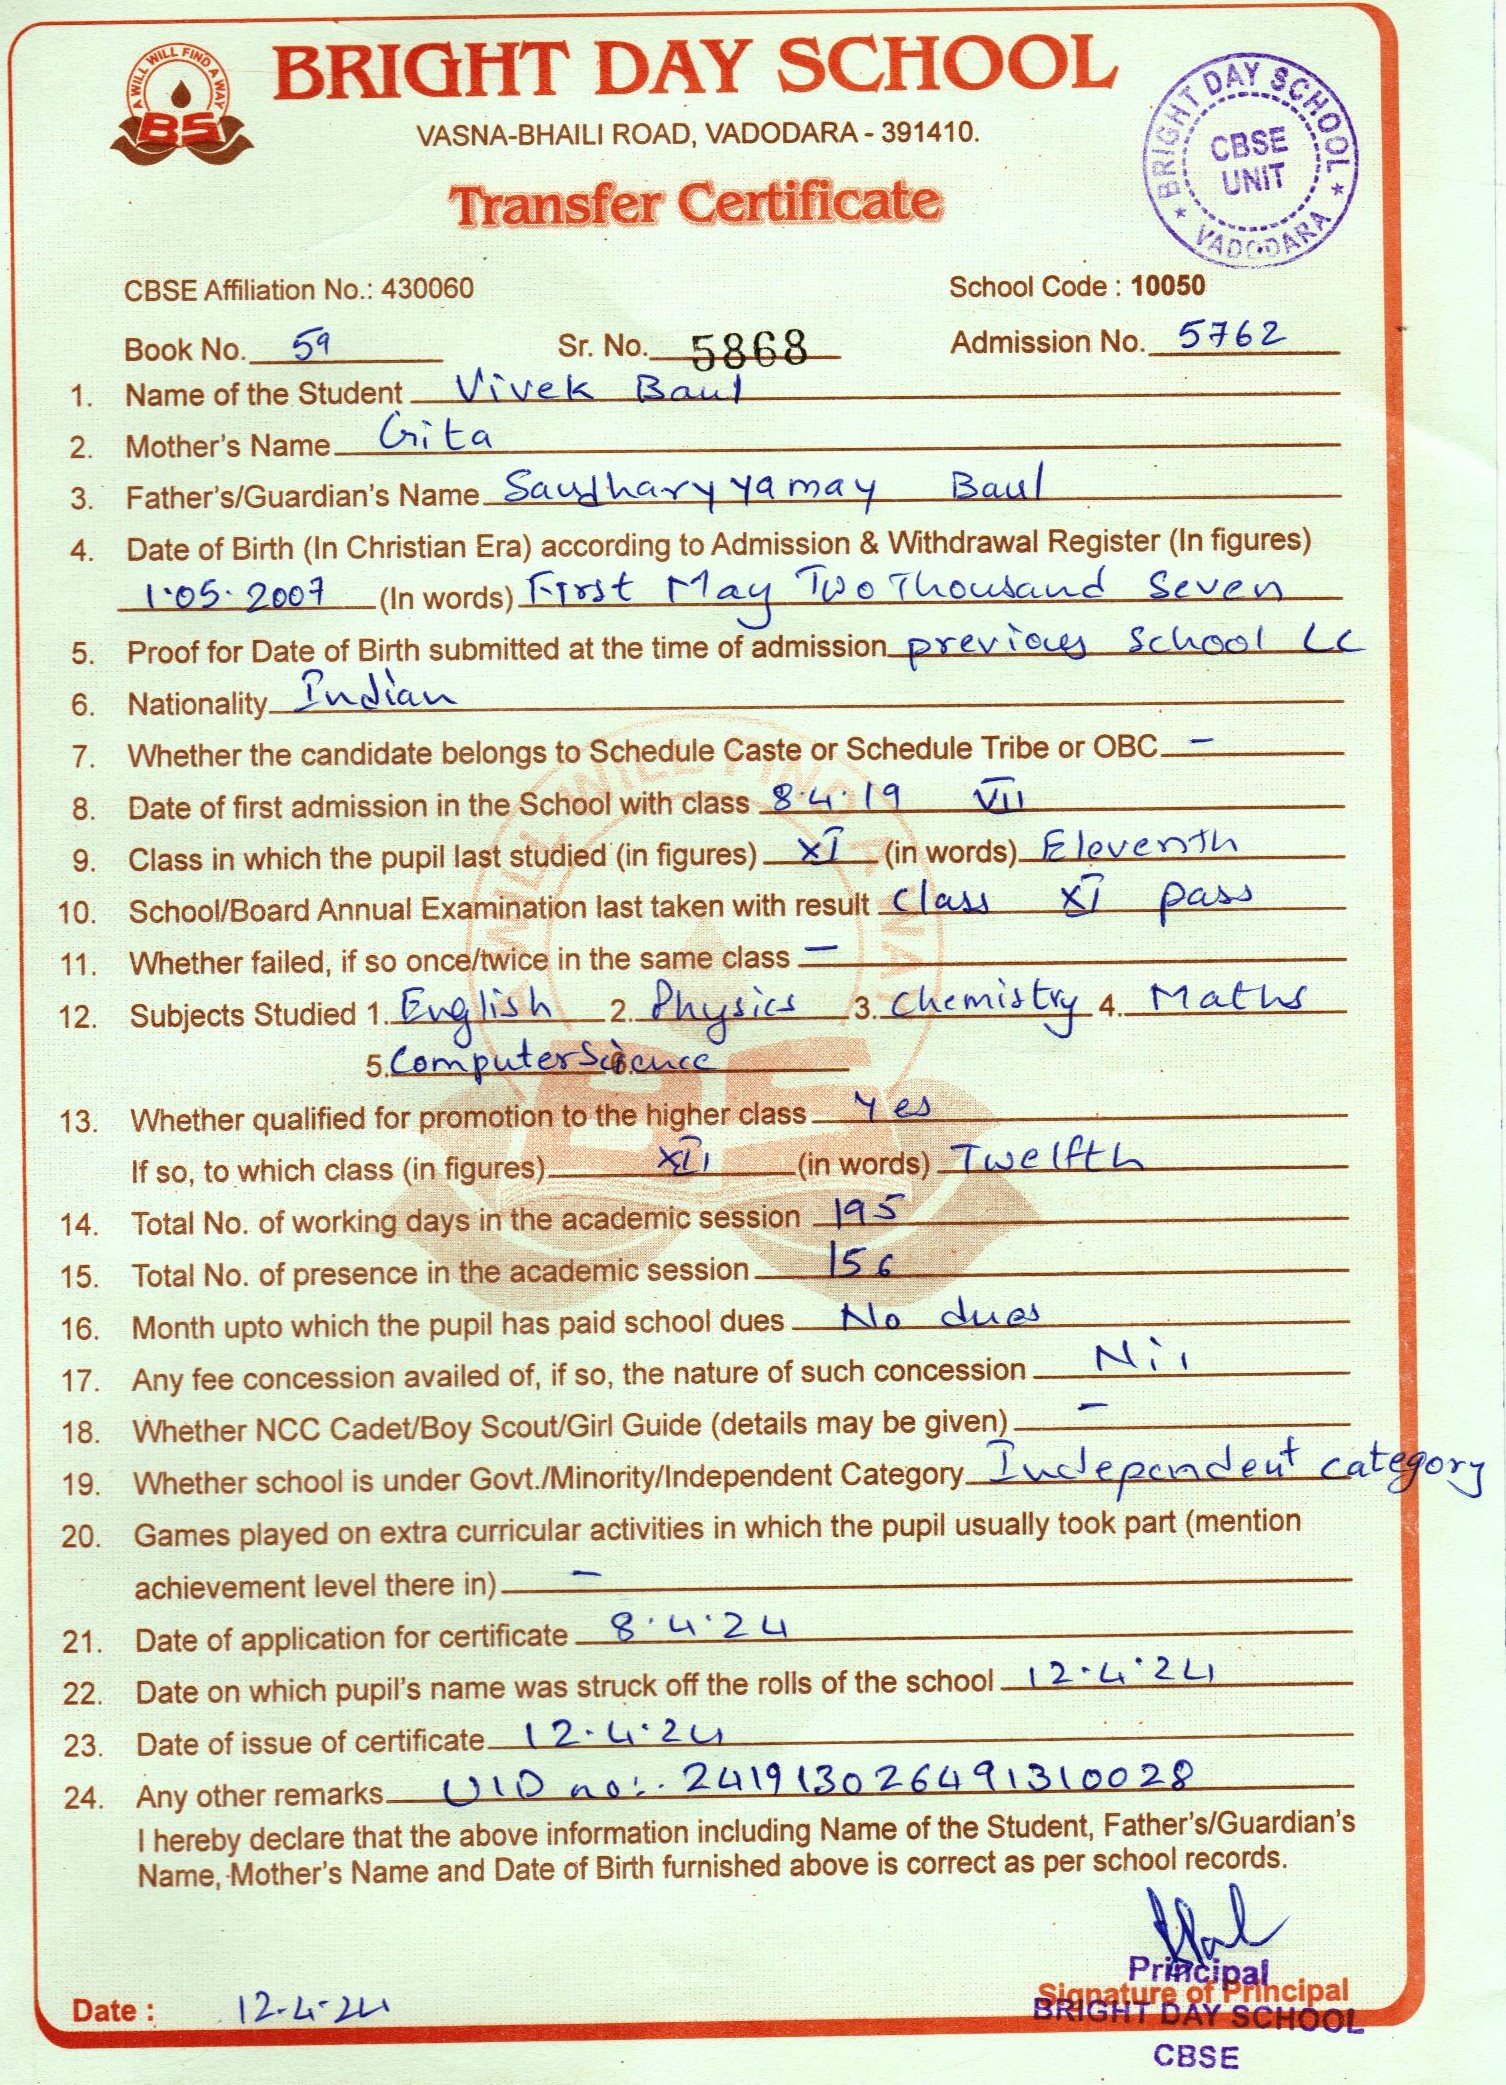 A WILL WILL FIND A WAY
BS
BRIGHT DAY SCHOOL
VASNA-BHAILI ROAD, VADODARA - 391410.
Transfer Certificate
BRIGHT DAY SCHOOL
CBSE
UNIT
VADODARA
CBSE Affiliation No.: 430060 School Code : 10050
Book No. 59 Sr. No. 5868 Admission No. 5762
1. Name of the Student Vivek Baul
2. Mother's Name Gita
3. Father's/Guardian's Name Saudharyyamay Baul
4. Date of Birth (In Christian Era) according to Admission & Withdrawal Register (In figures)
1.05.2007 (In words) First May Two Thousand Seven
5. Proof for Date of Birth submitted at the time of admission previous School LC
6. Nationality Indian
7. Whether the candidate belongs to Schedule Caste or Schedule Tribe or OBC –
8. Date of first admission in the School with class 8.4.19 VII
9. Class in which the pupil last studied (in figures) XI (in words) Eleventh
10. School/Board Annual Examination last taken with result Class XI pass
11. Whether failed, if so once/twice in the same class –
12. Subjects Studied 1. English 2. Physics 3. Chemistry 4. Maths
5. Computer Science 6.
13. Whether qualified for promotion to the higher class Yes
If so, to which class (in figures) XII (in words) Twelfth
14. Total No. of working days in the academic session 195
15. Total No. of presence in the academic session 156
16. Month upto which the pupil has paid school dues No dues
17. Any fee concession availed of, if so, the nature of such concession Nil
18. Whether NCC Cadet/Boy Scout/Girl Guide (details may be given) –
19. Whether school is under Govt./Minority/Independent Category Independent category
20. Games played on extra curricular activities in which the pupil usually took part (mention
achievement level there in) –
21. Date of application for certificate 8.4.24
22. Date on which pupil's name was struck off the rolls of the school 12.4.24
23. Date of issue of certificate 12.4.24
24. Any other remarks UID no:. 241913026491310028
I hereby declare that the above information including Name of the Student, Father's/Guardian's
Name, Mother's Name and Date of Birth furnished above is correct as per school records.
Principal
Signature of Principal
Date : 12-4-24 BRIGHT DAY SCHOOL
CBSE